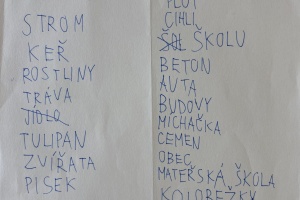 STROM
KEŘ
ROSTLINY
TRÁVA
JÍDLO
TULIPÁN
ZVÍŘATA
PISEK
PLOT
CIHLI
ŠKOLU
BETON
AUTA
BUDOVY
MICHAČKA
CEMEN
OBEC
MATEŘSKÁ ŠKOLA
KOLOBEŽKY